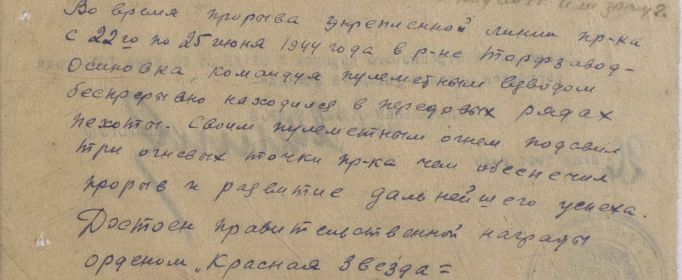 Во время прорыва укрепленной линии пр-ка
с 22го по 25 июня 1944 года в р-не Торфзавод-
Осиновка, командуя пулеметным взводом
беспрерывно находился в передовых рядах
пехоты. Своим пулеметным огнем подавил
три огневых точки пр-ка чем обеспечил
прорыв и развитие дальнейшего успеха.
Достоен правительственной награды
орденом „Красная Звезда=